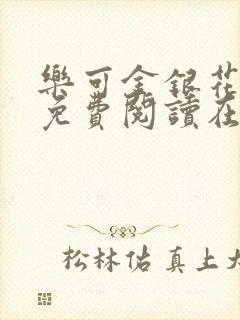 樂可金銀花
免費閱讀在
松林佑真上大